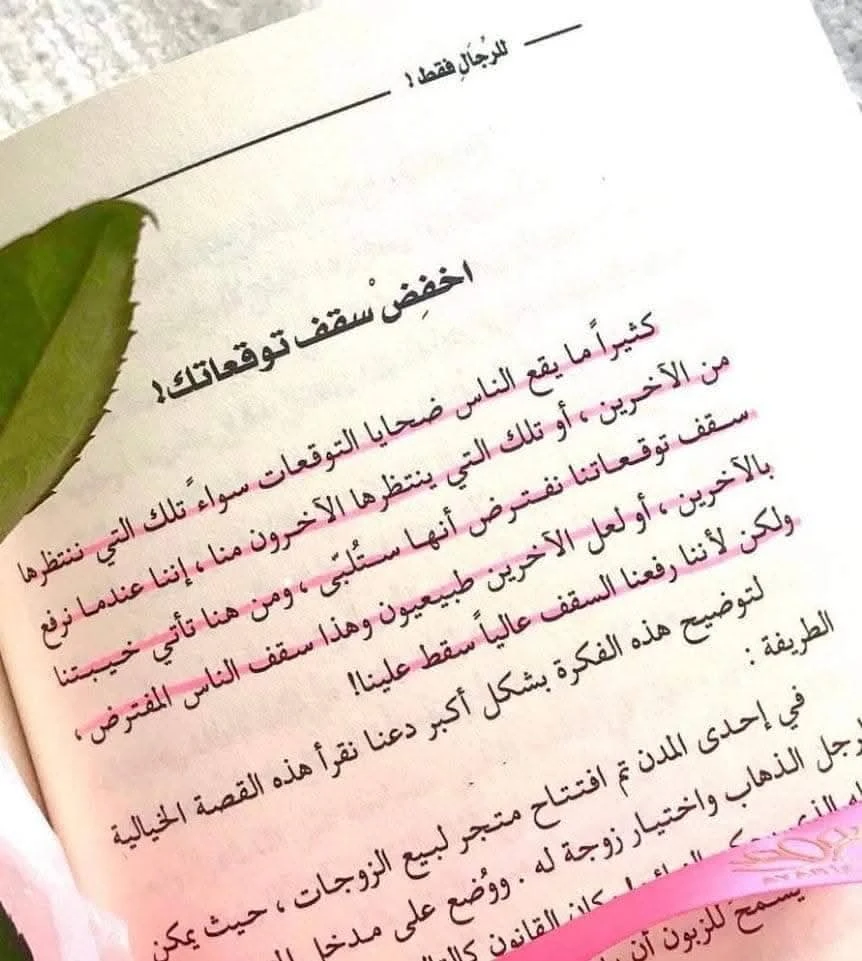 للرُجالِ فقط !
اخفِضْ سقف توقعاتك!
كثيراً ما يقع الناس ضحايا التوقعات سواءً تلك التي ننتظرها
من الآخرين ، أو تلك التي ينتظرها الآخرون منا ، إننا عندما نرفع
سقف توقعاتنا نفترض أنها ستُلبّى ، ومن هنا تأتي خيبتنا
بالآخرين ، أو لعل الآخرين طبيعيون وهذا سقف الناس المفترض ،
ولكن لأننا رفعنا السقف عالياً سقط علينا!
لتوضيح هذه الفكرة بشكل أكبر دعنا نقرأ هذه القصة الخيالية
الطريفة :
في إحدى المدن تم افتتاح متجر لبيع الزوجات ، حيث يمكن
الذهاب واختيار زوجة له . ووُضع على مدخل
كان القانون
يسمح للزبون أن
AYARI